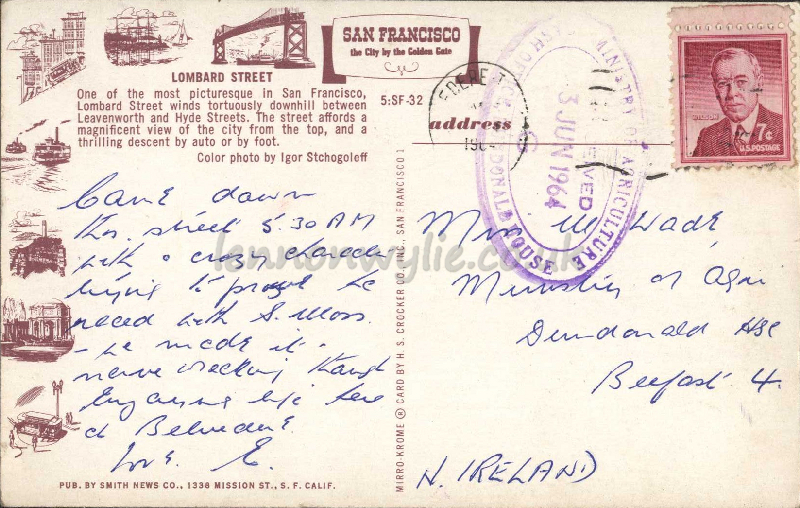 SAN FRANCISCO
the City by the Golden Gate
LOMBARD STREET
One of the most picturesque in San Francisco,
Lombard Street winds tortuously downhill between
Leavenworth and Hyde Streets. The street affords a
magnificent view of the city from the top, and a
thrilling descent by auto or by foot.
Color photo by Igor Stchogoleff
5:SF-32
address
Came down
this street 5.30 AM
with a crazy character
trying to prove he
raced with S. Moss
- he made it.
nerve wrecking though
Enjoying life here
at Belvedere.
Love. E.
PUB. BY SMITH NEWS CO., 1338 MISSION ST., S. F. CALIF.
MIRRO-KROME ® CARD BY H. S. CROCKER CO. INC., SAN FRANCISCO 1
MINISTRY OF AGRICULTURE
3 JUN 1964
HOUSE
WILSON
7¢
U.S. POSTAGE
Miss M Wade
Ministry of Agri
Dundonald Hse
Belfast 4.
N. IRELAND
lennonwylie.co.uk